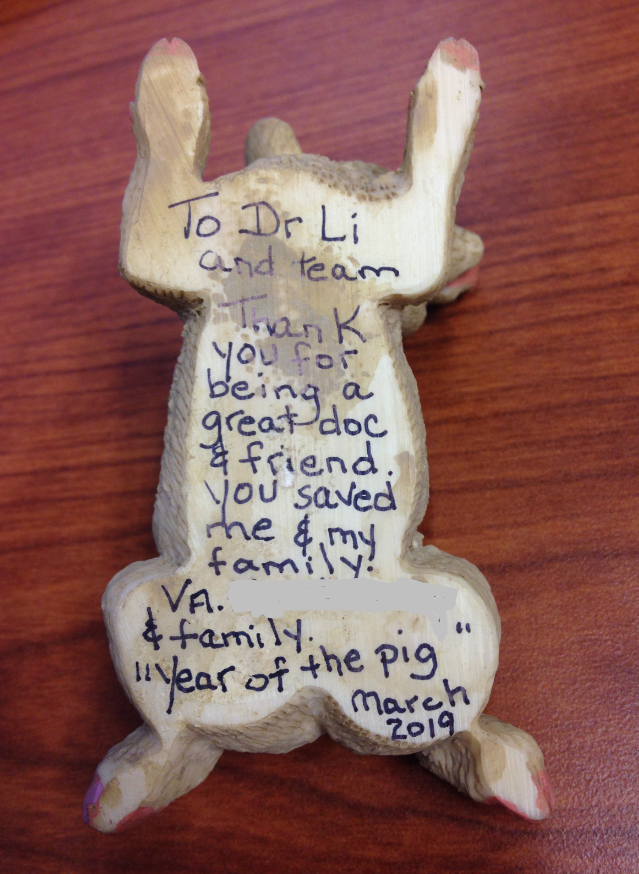 To Dr Li
and team
Thank
you for
being a
great doc
& friend.
you saved
me & my
family.
VA.
& family.
"year of the pig"
March
2019